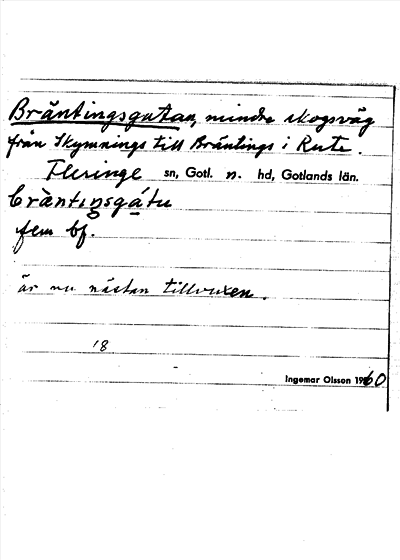 Bräntingsgatan, mindre skogsväg
från Skymnings till Bräntings i Rute.
Fleringe sn, Gotl. n. hd, Gotlands län.
bràntingsgátu
fem bf.
är nu nästan tillvuxen.
18
Ingemar Olsson 1960